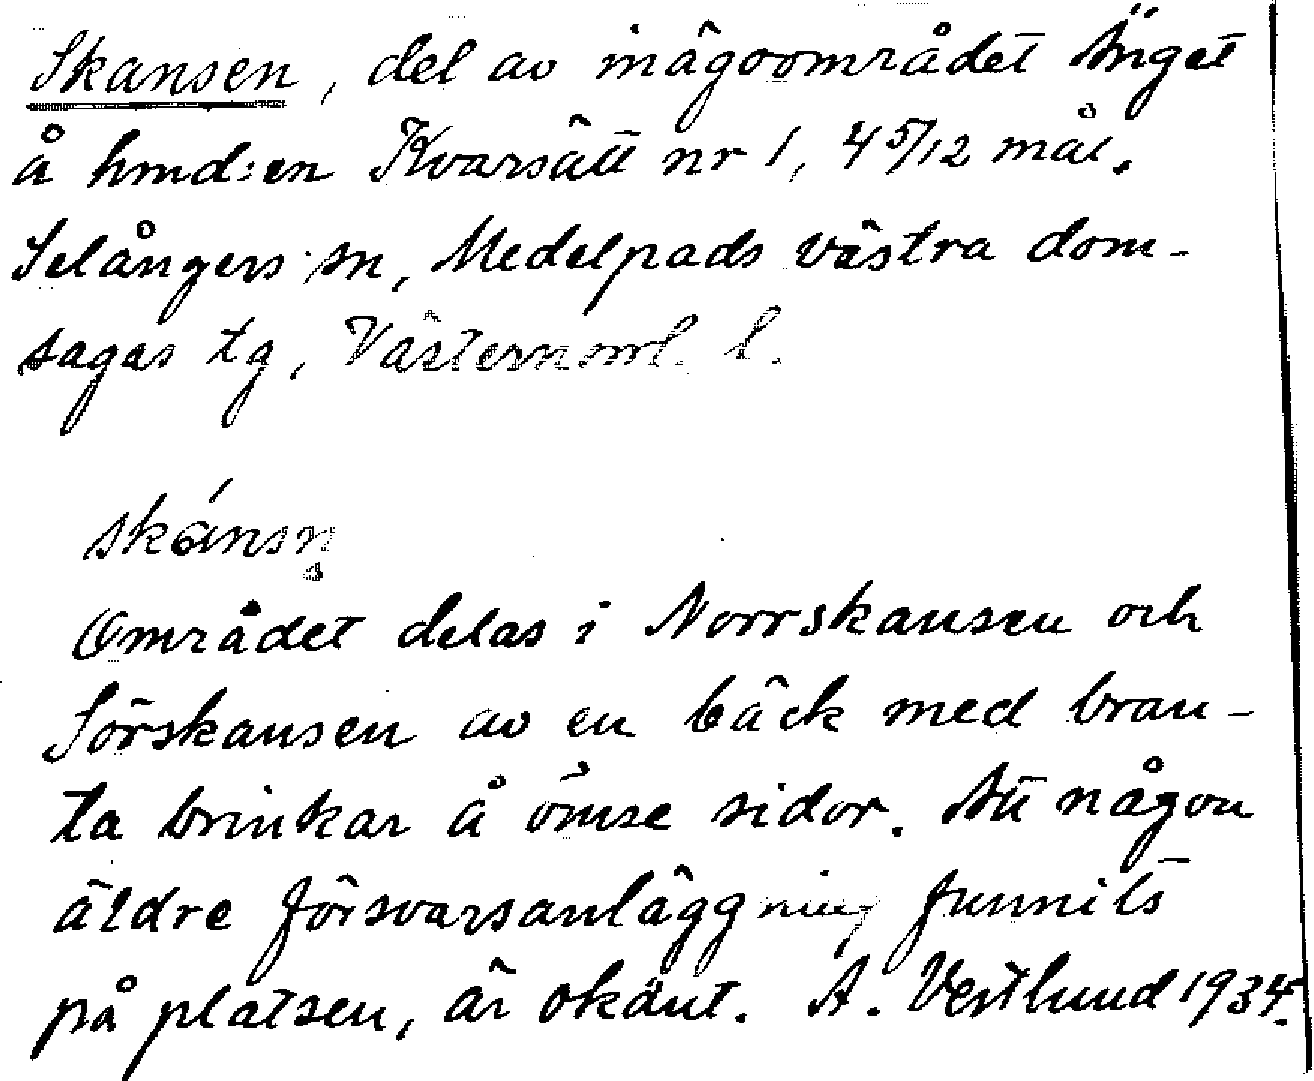 Skansen, del av inägoområdet Änget
å hmd:en Kvarsätt nr 1, 4 5/12 mål.
Selångers sn, Medelpads västra dom-
sagas tg, Västernorrl. l.
skánsn̥
Området delas i Norrskansen och
Sörskansen av en bäck med bran-
ta brinkar å ömse sidor. Att någon
äldre försvarsanläggning funnits
på platsen, är okänt. A. Vestlund 1934.